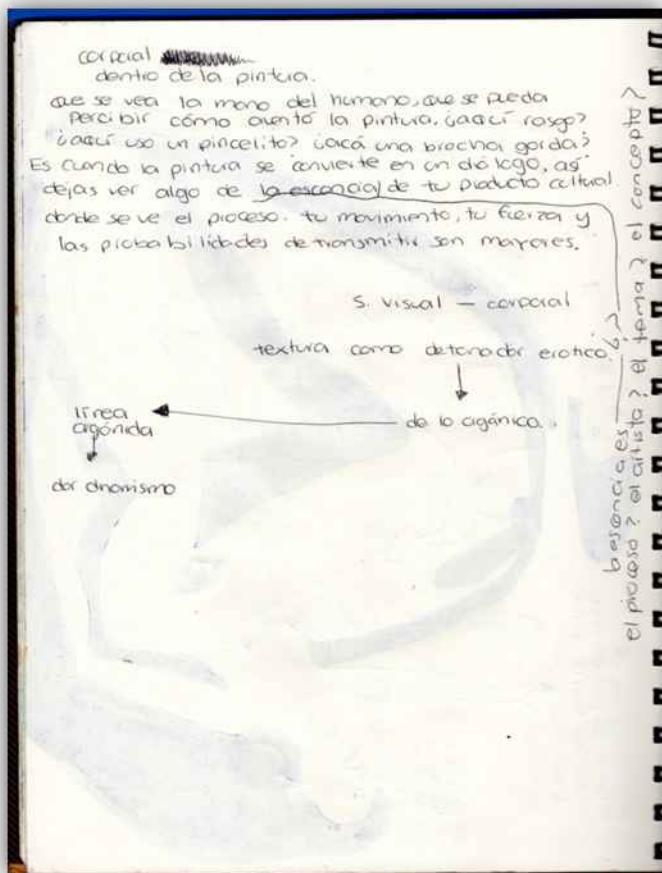 corporal
dentro de la pintura.
que se vea la mano del humano, que se pueda
percibir cómo aventó la pintura. ¿aquí rasgo?
¿aquí uso un pincelito? ¿acá una brocha gorda?
Es cuando la pintura se convierte en un diálogo, así
dejas ver algo de lo escencial de tu producto cultural.
donde se ve el proceso. tu movimiento, tu fuerza y
las probabilidades de transmitir son mayores.
S. visual — corporal
textura como detonador erotico.
de lo orgánico.
línea
orgánida
dar dinamismo
lo esencial es
el proceso? el artista? el tema? el concepto?